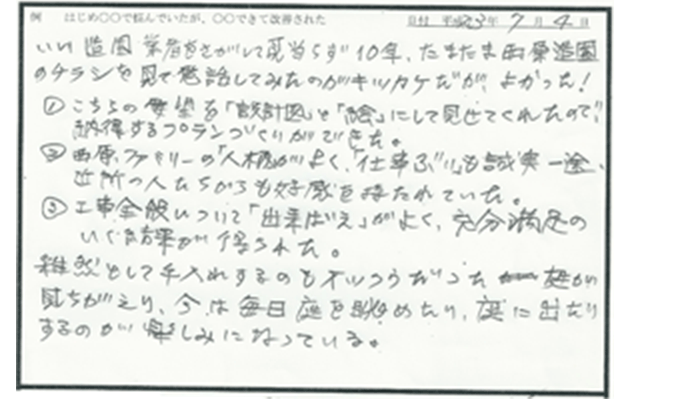 例 はじめ〇〇で悩んでいたが、〇〇できて改善された 日付 平成23年7月4日
いい造園業者をさがして見当らず10年、たまたま西原造園
のチラシを見て電話してみたのがキッカケだが、よかった！
① こちらの要望を「設計図」と「絵」にして見せてくれたので、
納得するプランづくりができた。
② 西原ファミリーの「人柄」がよく、「仕事ぶり」も誠実一途、
近所の人たちからも好感を持たれていた。
③ 工事全般について「出来ばえ」がよく、充分満足の
いく結果が得られた。
雑然として手入れするのもオックウだった 庭が
見ちがえり、今は毎日庭を眺めたり、庭に出たり
するのが楽しみになっている。